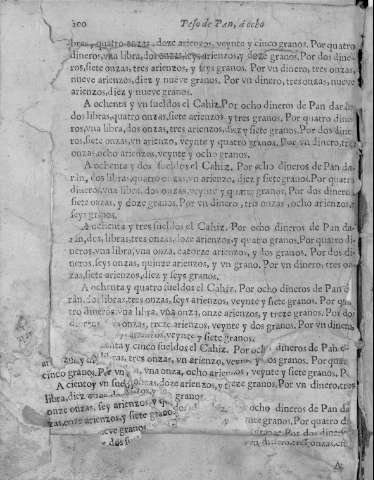 100 Peso de Pan, á ocho
libras, y quatro onzas, doze arienzos, veynte y cinco granos. Por quatro
dineros, vna libra, dos onzas, seys arienzos, y doze granos. Por dos dine
ros, siete onzas, tres arienzos, y seys granos. Por vn dinero, tres onzas,
nueve arienzos, diez y nueve granos. Por vn dinero, tres onzas, nueve
arienzos, diez y nueve granos.
A ochenta y vn sueldos el Cahiz. Por ocho dineros de Pan darán
dos libras, quatro onzas, siete arienzos y tres granos. Por quatro dine
ros, vna libra, dos onzas, tres arienzos, diez y siete granos. Por dos dine
ros, siete onzas, vn arienzo, veynte y quatro granos. Por vn dinero, tres
onzas, ocho arienzos, veynte y ocho granos.
A ochenta y dos sueldos el Cahiz. Por ocho dineros de Pan da-
rán, dos libras, quatro onzas, vn arienzo, diez y siete granos. Por quatro
dineros, vna libra, dos onzas, veynte y quatro granos. Por dos dineros
siete onzas, y doze granos. Por vn dinero, tres onzas, ocho arienzos,
seys granos.
A ochenta y tres sueldos el Cahiz. Por ocho dineros de Pan da-
rán, dos libras, tres onzas, doze arienzos, y quatro granos. Por quatro di
neros, vna libra, vna onza, catorze arienzos, y dos granos. Por dos di-
neros, seys onzas, quinze arienzos, y vn grano. Por vn dinero, tres on
zas, siete arienzos, diez y seys granos.
A ochenta y quatro sueldos el Cahiz. Por ocho dineros de Pan
rán, dos libras, tres onzas, seys arienzos, veynte y siete granos. Por qua
tro dineros, vna libra, vna onza, onze arienzos, y treze granos. Por dos
onzas, treze arienzos, veynte y dos granos. Por vn dinero,
arienzos, veynte y siete granos.
y cinco sueldos el Cahiz. Por ocho dineros de Pan
tres onzas, vn arienzo, veynte y dos granos. Por quatro
cinco granos. Por vna onza, ocho arienzos, veynte y siete granos. P
A ciento y vn onzas, doze arienzos, y diez granos. Por vn dinero, tres
libra, diez granos
onze onzas, sey arienzos, y ocho dineros de Pan da
zas, onze arienzos, y siete granos. Por quatro di
nueve granos Por dos dineros
vn dinero, tres onzas,
A